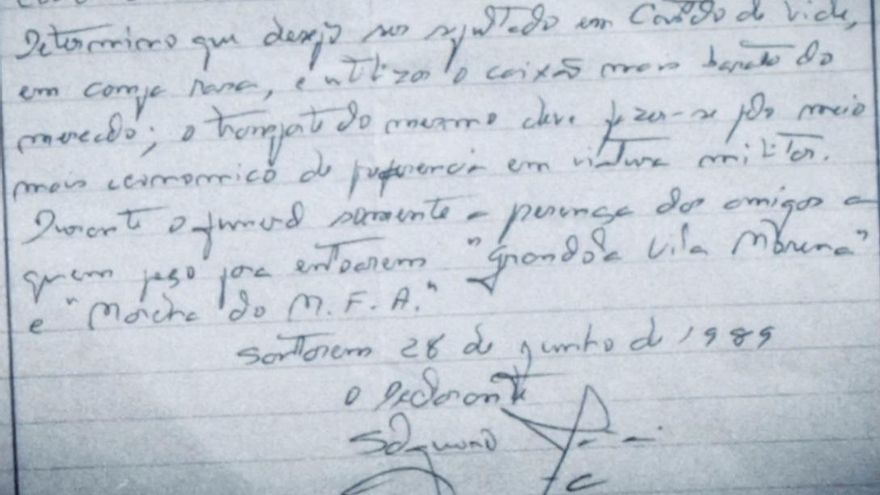 Determino que desejo ser sepultado em Castelo de Vide,
em campa rasa, e utilizar o caixão mais barato do
mercado; o transporte do mesmo deve fazer-se pelo meio
mais economico de preferencia em viatura militar.
Durante o funeral somente a presença dos amigos a
quem peço para entoarem "Grandola Vila Morena"
e "Marcha do M.F.A."
Santarem 28 de junho de 1989
O Declarante
Salgueiro